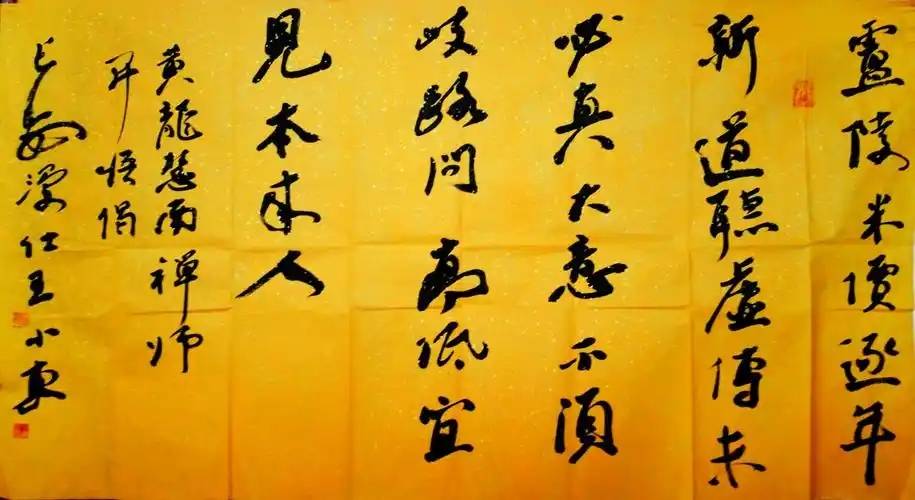 盧陵米價逐年
新道聽虛傳未
必真大意不須
岐路問高低宜
見本來人
黄龍慧南禅师
开悟偈
仕王小東